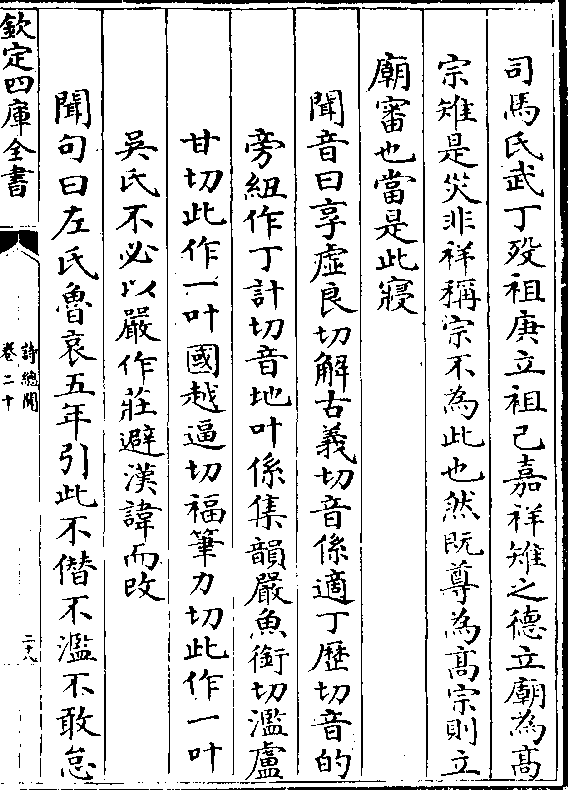 司馬氏武丁歿祖庚立祖己嘉祥雉之德立廟為髙
宗雉是災非祥稱宗不為此也然既尊為髙宗則立
廟審也當是此寢
聞音曰享虛良切解古義切音係適丁歴切音的
旁紐作丁計切音地叶係集韻嚴魚銜切濫盧
甘切此作一叶國越逼切福筆力切此作一叶
吳氏不必以嚴作莊避漢諱而改
聞句曰左氏魯哀五年引此不僭不濫不敢怠
欽定四庫全書
詩總聞
卷二十
二十八